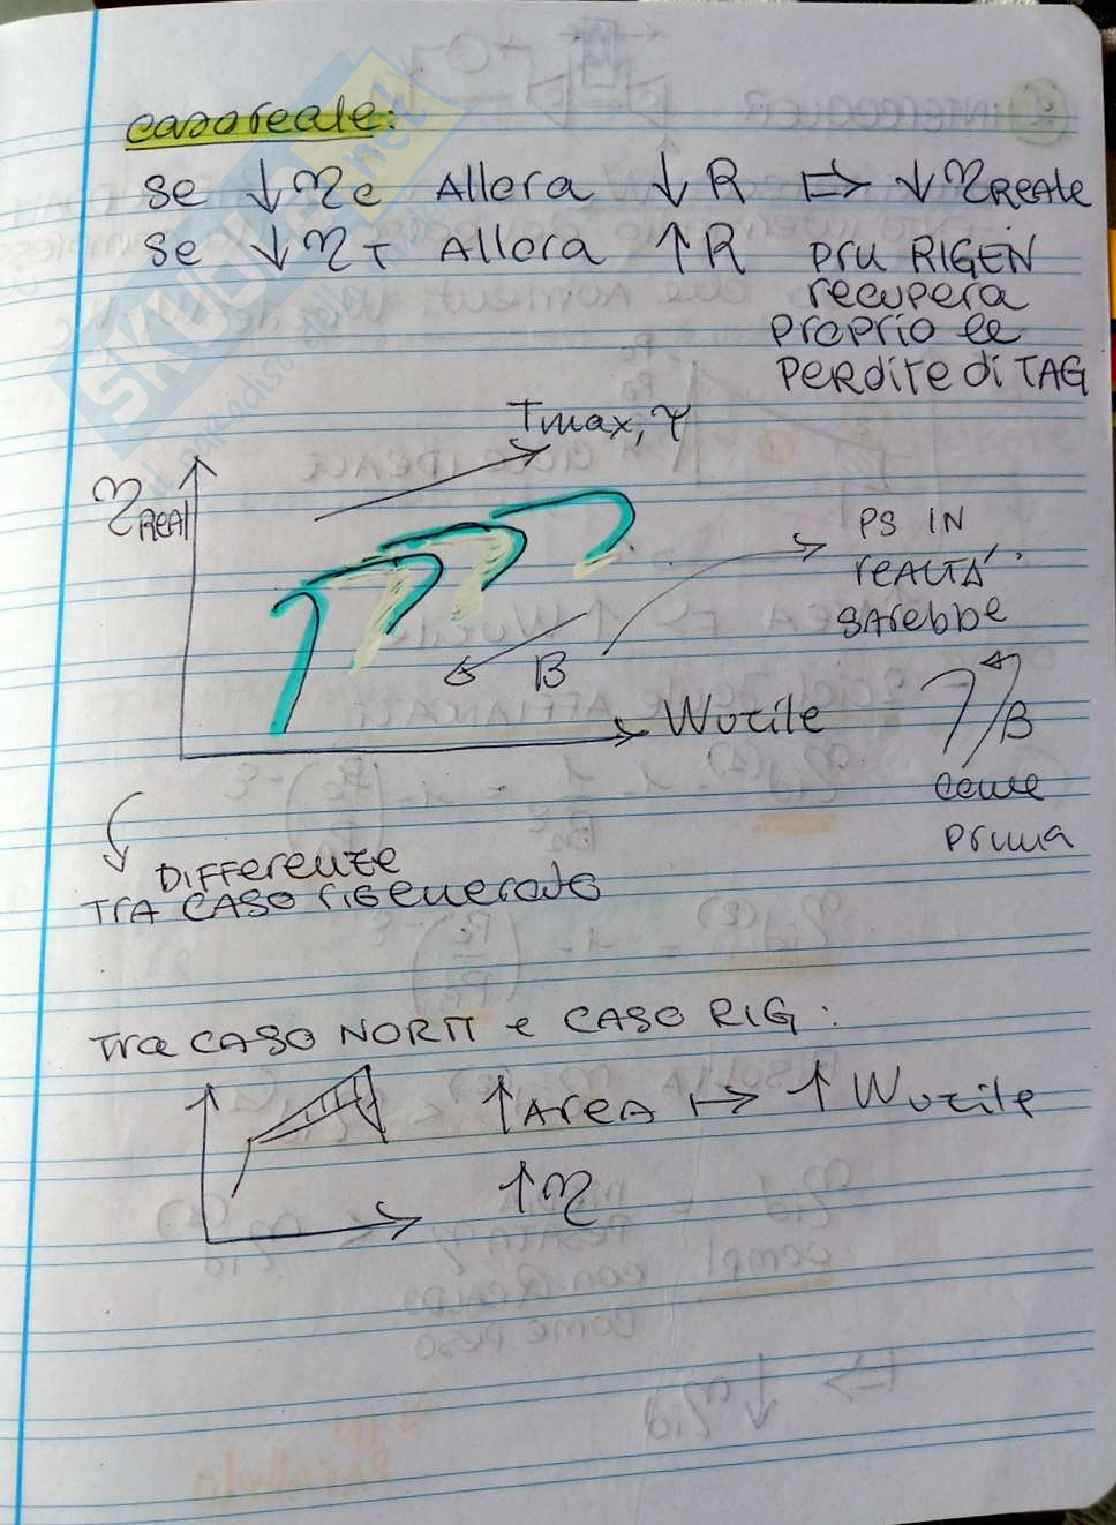 caso reale:
se ↓ηc Allora ↓R ⇒ ↓ηREALE
se ↓ηT Allora ↑R più RIGEN
recupera
proprio le
perdite di TAG
Tmax, τ
ηREAL
PS IN
reALTÀ
SArebbe
β
Wutile
β
come
prima
DIFFerenze
TrA CASO riGenerato
Tra CASO NORM e CASO RIG:
↑AreA ↦ ↑Wutile
↑η
SKUOLA.net